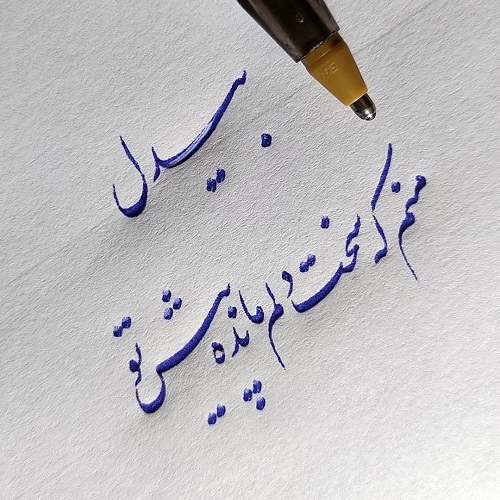 بیدل
منم که سخت دلم مانده پیش تو